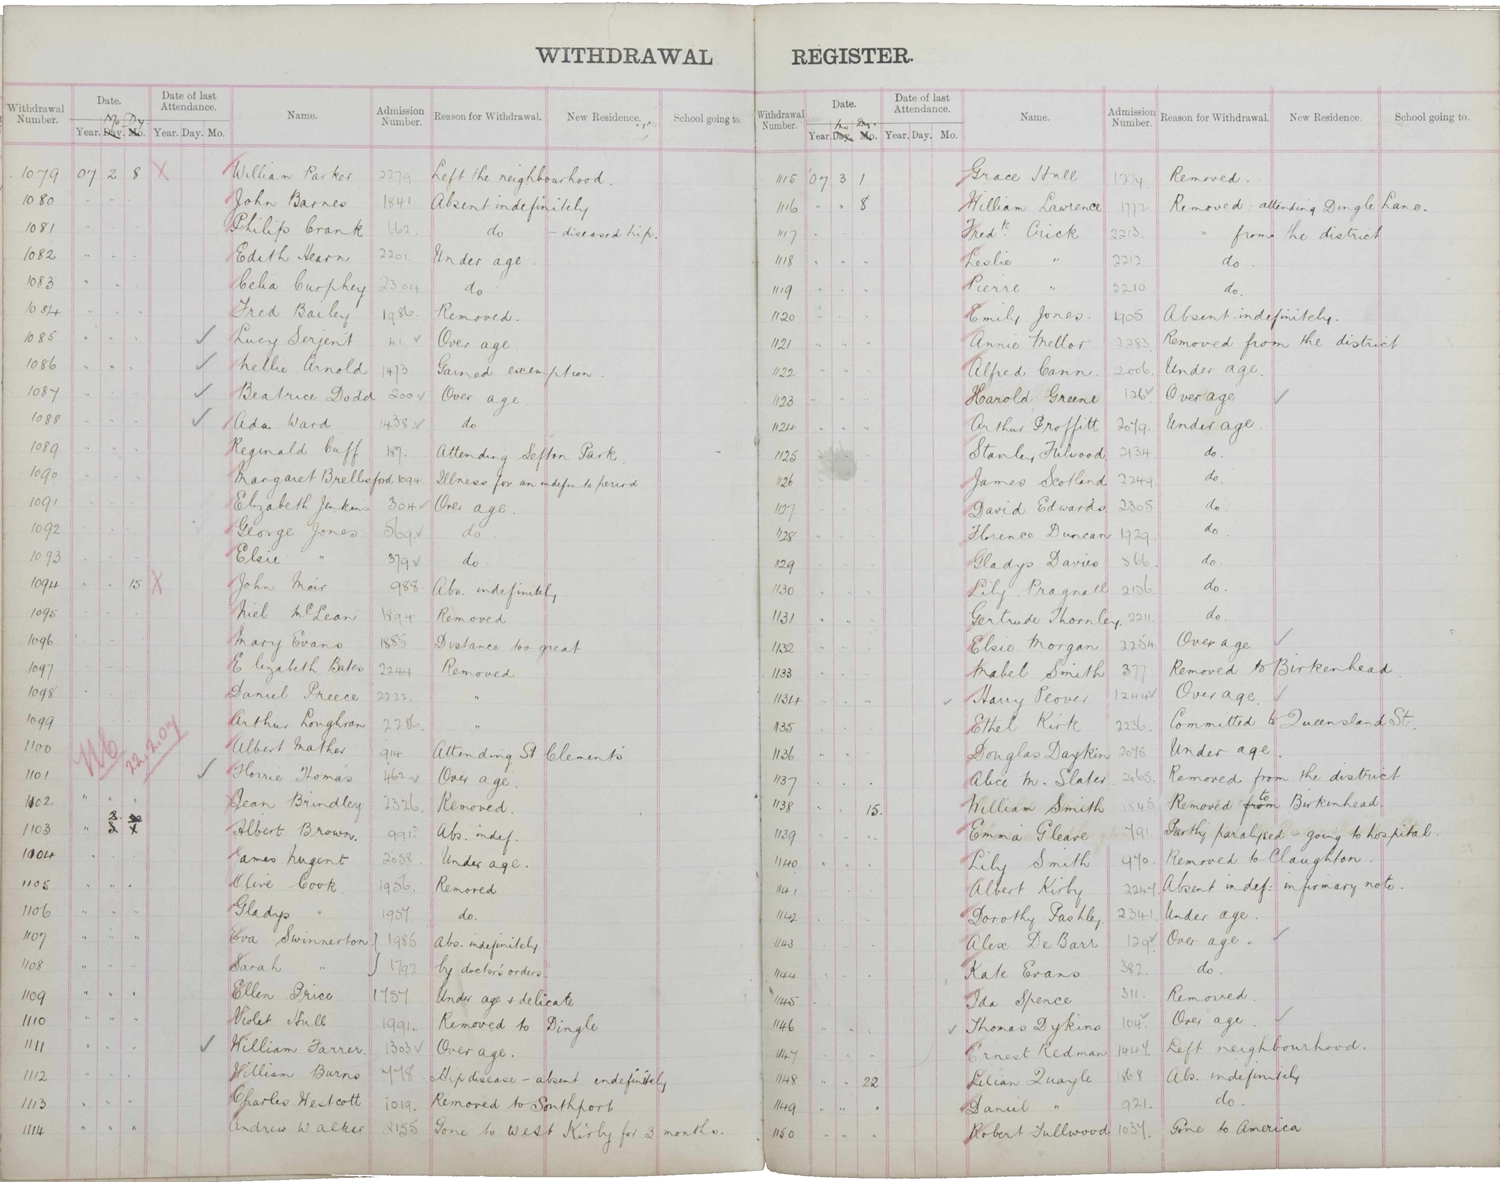 WITHDRAWAL REGISTER.
Withdrawal Number. Date. Date of last Attendance. Name. Admission Number. Reason for Withdrawal. New Residence. School going to.
Mo. Dy
Year. Day. Mo. Year. Day. Mo.
1079 07 2 8 X William Parker 2279. Left the neighbourhood.
1080 " " John Barnes 1841 Absent indefinitely
1081 Philip Crank 662. do - diseased hip.
1082 " " Edith Hearn 2201. Under age
1083 " " Celia Curphey 2304 do
1084 " " Fred Bailey 1986. Removed.
1085 " " ✓ Lucy Serjent 41 ✓ Over age
1086 " " ✓ Nellie Arnold 1473 Gained exemption.
1087 " " ✓ Beatrice Dodd 200 ✓ Over age
1088 " " ✓ Ada Ward 1438. ✓ do
1089 " " Reginald Cuff 187. Attending Sefton Park.
1090 " " Margaret Brellisford 1094 Illness for an indefinite period
1091 " " Elizabeth Jenkins 304 ✓ Over age.
1092 " " George Jones 569. ✓ do
1093 " " Elsie " 379 ✓ do
1094 " " 15 X John Moir 988. Abs. indefinitely
1095 " " Niel McLean 1894 Removed
1096 " " Mary Evans 1885 Distance too great
1097 " " Elizabeth Bates 2244 Removed
1098 " Daniel Preece 2222. "
1099 " " Arthur Loughran 2286. "
1100 Albert Mather 914 Attending St Clement's
22.2.07
1101 ✓ Florrie Thomas 462 ✓ Over age.
1102 " " " Jean Brindley 2326. Removed.
1103 " Albert Brown. 991. Abs. indef.
1104 " " " James Nugent 2058. Under age.
1105 " " " Olive Cook 1956. Removed
1106 " " " Gladys " 1957. do.
1107 " " " Eva Swinnerton } 1985 Abs. indefinitely
1108 " " " Sarah " } 1792 by doctor's orders.
1109 " " " Ellen Price 1757 Under age & delicate
1110 " " " Violet Hull 1991. Removed to Dingle
1111 " " " ✓ William Farrer. 1303 ✓ Over age.
1112 " " " William Burns 778. Hip disease - absent indefinitely
1113 " " " Charles Westcott 1019. Removed to Southport
1114 " " " Andrew Walker 2155 Gone to West Kirby for 3 months.
Withdrawal Number. Date. Date of last Attendance. Name. Admission Number. Reason for Withdrawal. New Residence. School going to.
Mo. Dy.
Year. Day. Mo. Year. Day. Mo.
1115 07 3 1 Grace Hull 1274. Removed.
1116 " " 8 William Lawrence 1772 Removed: attending Dingle Lane.
1117 Fredk. Crick 2213. " from the district
1118 " " " Leslie " 2212 do.
1119 " " " Pierre " 2210 do.
1120 Emily Jones. 1905 Absent indefinitely.
1121 " " " Annie Mellor 2283 Removed from the district
1122 Alfred Cann. 2006. Under age.
1123 Harold Greene 126 ✓ Over age ✓
1124 " " " Arthur Proffitt 2079. Under age.
1125 Stanley Fulwood 2134 do.
1126 James Scotland 2249. do.
1127 David Edwards 2305 do.
1128 Florence Duncan 1929. do
1129 Gladys Davies 866. do.
1130 Lily Pragnall 2136. do.
1131 Gertrude Thornley. 2211. do.
1132 Elsie Morgan 2254 Over age ✓
1133 Mabel Smith 377 Removed to Birkenhead.
1134 ✓ Harry Peover 1244 ✓ Over age. ✓
1135 Ethel Kirk 2236. Committed to Queensland St.
1136 Douglas Daykin 2075 Under age.
1137 Alice M. Slater 2065. Removed from the district
1138 15. William Smith 1845 Removed from to Birkenhead.
1139 Emma Gleave 791. Partly paralysed - going to hospital.
1140 Lily Smith 970. Removed to Claughton.
1141 Albert Kirby 2247. Absent indef: infirmary note.
1142 Dorothy Pashley. 2341. Under age.
1143 Alex De Barr 129 ✓ Over age. ✓
1144 Kate Evans 382. do.
1145 Ida Spence 311. Removed.
1146 ✓ Thomas Dykins 104 ✓ Over age. ✓
1147 Ernest Redman 1447. Left neighbourhood.
1148 " " 22 Lilian Quayle 868 Abs. indefinitely
1149 " " " Daniel " 921. do.
1150 " " " Robert Fullwood 1037. Gone to America